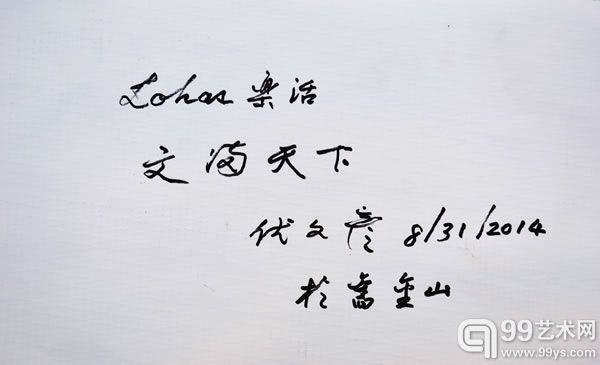 Lohas 樂活
文满天下
伏文彦 8/31/2014
於舊金山
99艺术网
www.99ys.com